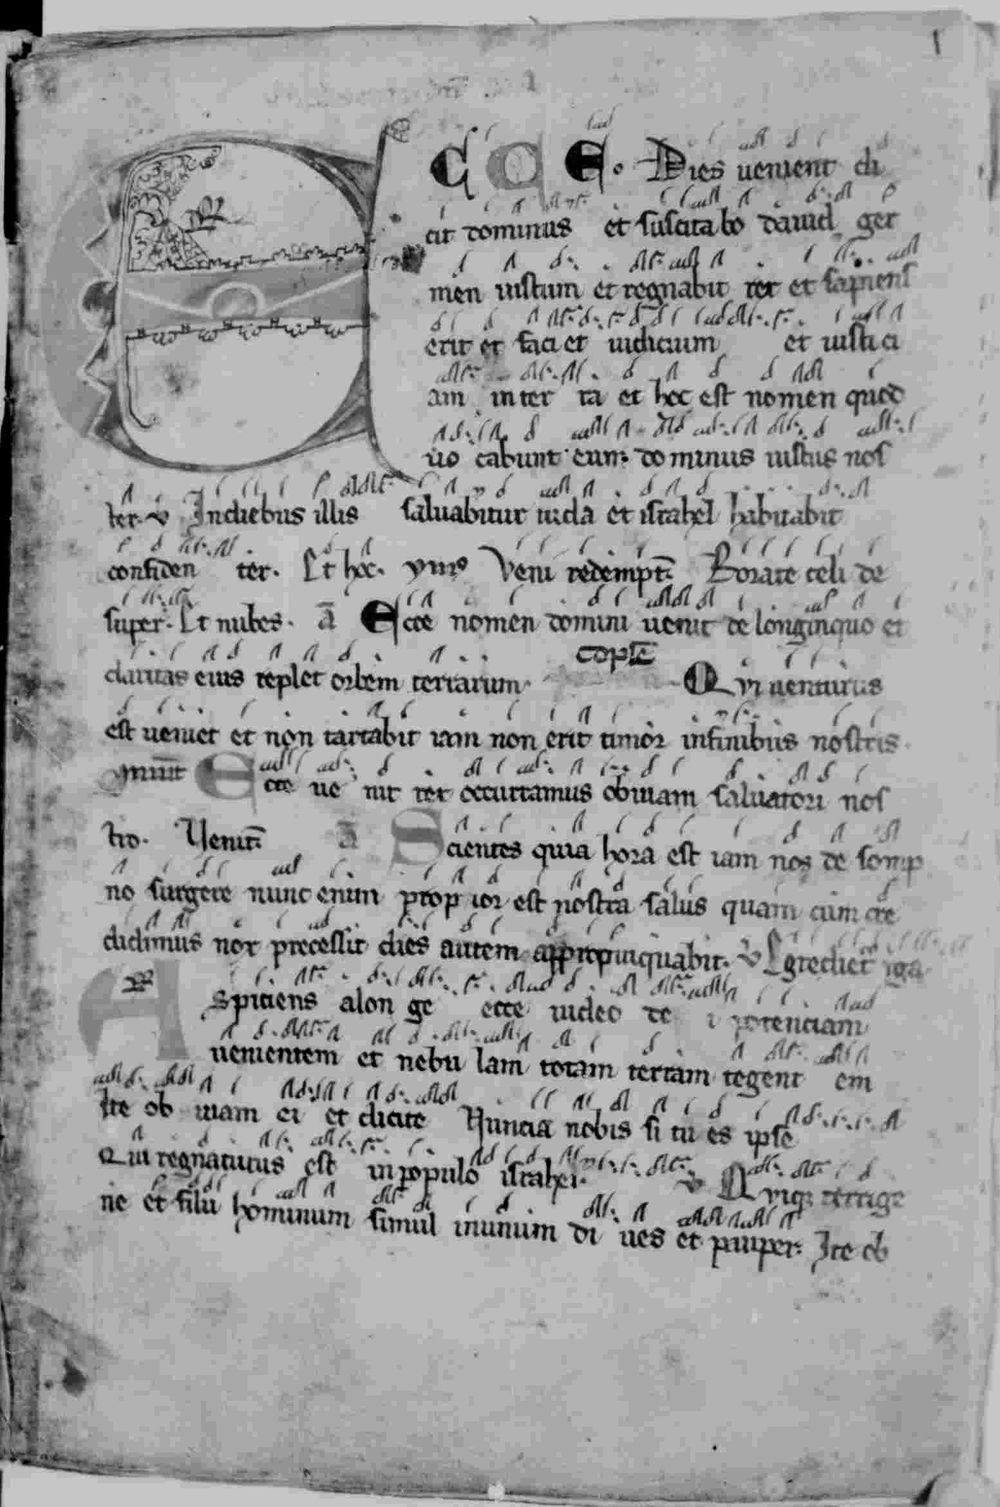 1
ECCE. Dies uenient di
cit dominus et suscitabo dauid ger
men iustum et regnabit rex et sapiens
erit et faciet iudicium et iustici
am in ter ra et hoc est nomen quod
uo cabunt eum dominus iustus nos
ter. v Indiebus illis saluabitur iuda et israhel habitabit
confiden ter. Et hoc. ymꝰ Veni redempt̄. Rorate celi de
super. Et nubes. ā Ecce nomen domini uenit de longinquo et
claritas eius replet orbem terrarum.
copl̄e
Qui uenturus
est ueniet et non tardabit iam non erit timor infinibus nostris
Ecce ue nit rex occurramus obuiam saluatori nos
tro. Venit̄ ā Scientes quia hora est iam nos de somp
no surgere nunc enim propior est nostra salus quam cum cre
didimus nox precessit dies autem appropinquabit. v Egrediet̄ uirga
Aspiciens alon ge ecce uideo de i potenciam
uenientem et nebu lam totam terram tegent em
Ite ob uiam ei et dicite Nuncia nobis si tu es ipse
Qui regnaturus est inpopulo israhel. v Quiq; terrige
ne et filii hominum simul inunum di ues et pauper. Ite ob